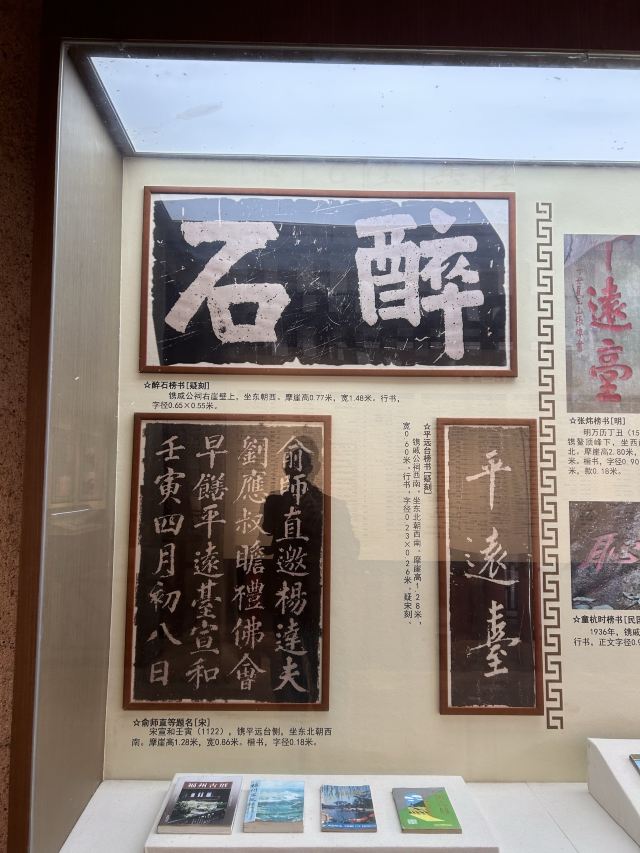 醉石
☆醉石榜书[疑刻]
镌戚公祠右崖壁上，坐东朝西。摩崖高0.77米，宽1.48米。行书，
字径0.65×0.55米。
俞師直邀楊達夫
劉應叔瞻禮佛會
早饍平遠臺宣和
壬寅四月初八日
☆俞师直等题名[宋]
宋宣和壬寅（1122），镌平远台侧，坐东北朝西
南。摩崖高1.28米，宽0.86米。楷书，字径0.18米。
☆平远台榜书[疑刻]
镌戚公祠西南，坐东北朝西南。摩崖高1.28米，
宽0.60米。行书，字径0.23×0.26米。疑宋刻。
平遠臺
平遠臺
☆张炜榜书[明]
明万历丁丑（15
镌鳌顶峰下，坐西
北。摩崖高2.80米，
米。楷书，字径0.90
米，款0.18米。
☆童杭时榜书[民国
1936年，镌戚
行书，正文字径0.9